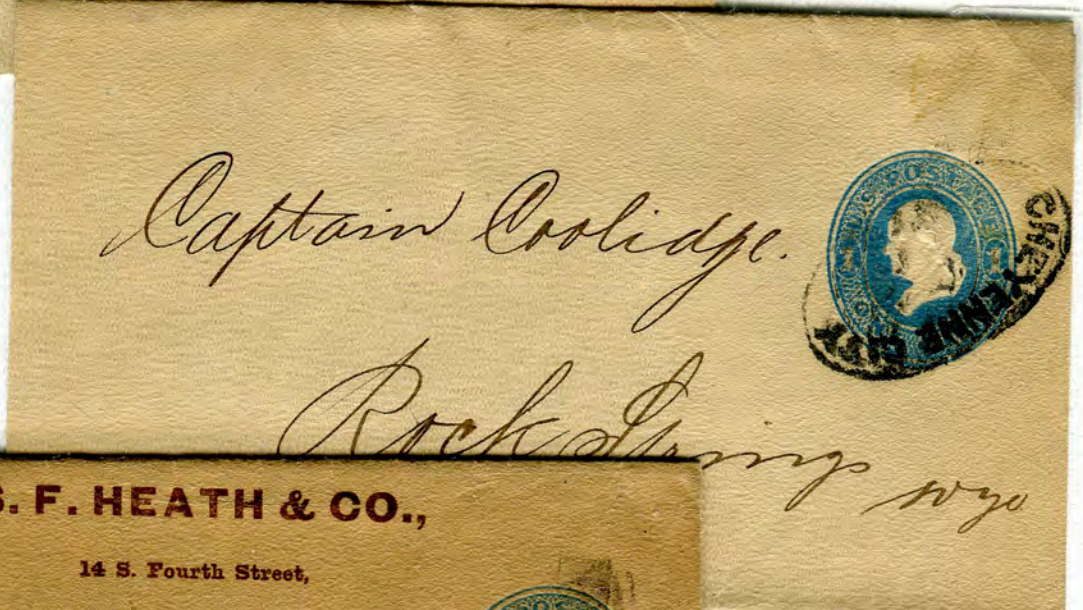 Captain Coolidge.
Rock Springs
wyo
U.S. POSTAGE
1 1
CHEYENNE CITY
S. F. HEATH & CO.,
14 S. Fourth Street,